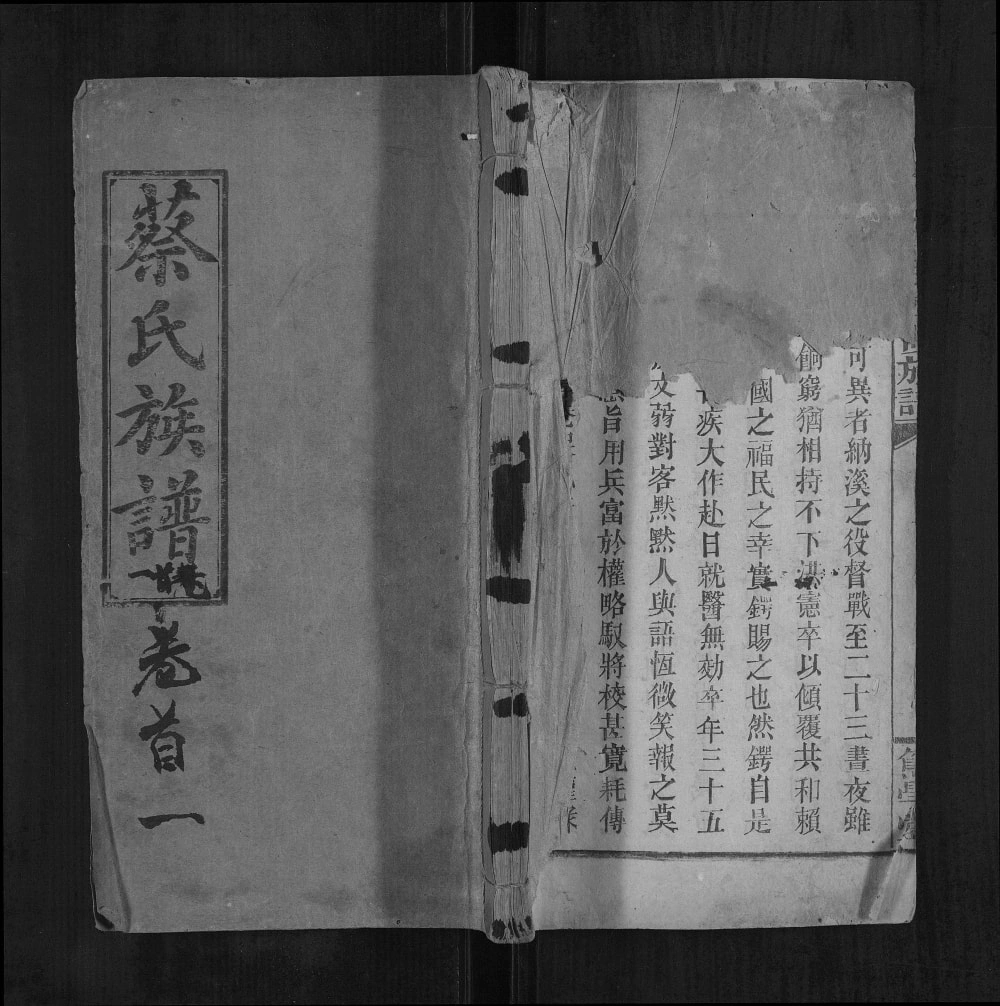 族譜
何異者納溪之役督戰至二十三晝夜雖
餉窮猶相持不下洪憲卒以傾覆共和賴
國之福民之幸實鍔賜之也然鍔自是
疾大作赴日就醫無効卒年三十五
文弱對客默默人與語恆微笑報之莫
旨用兵富於權略馭將校甚寬耗傳
蔡氏族譜
卷首一